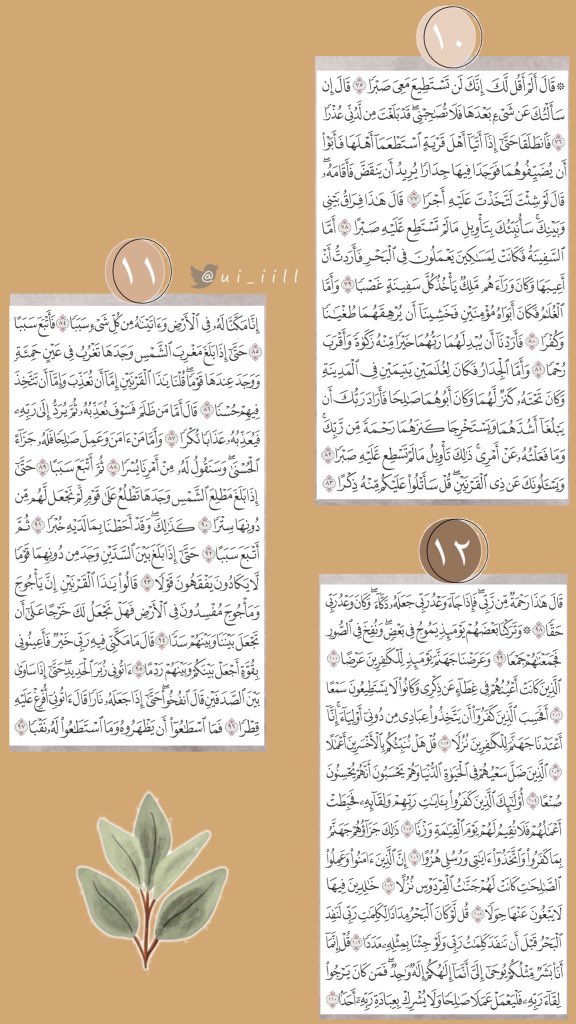 ١٠
۞ قَالَ أَلَمْ أَقُل لَّكَ إِنَّكَ لَن تَسْتَطِيعَ مَعِيَ صَبْرًا ٧٥ قَالَ إِن
سَأَلْتُكَ عَن شَىْءٍۭ بَعْدَهَا فَلَا تُصَٰحِبْنِى ۖ قَدْ بَلَغْتَ مِن لَّدُنِّى عُذْرًا
٧٦ فَٱنطَلَقَا حَتَّىٰٓ إِذَآ أَتَيَآ أَهْلَ قَرْيَةٍ ٱسْتَطْعَمَآ أَهْلَهَا فَأَبَوْا۟
أَن يُضَيِّفُوهُمَا فَوَجَدَا فِيهَا جِدَارًا يُرِيدُ أَن يَنقَضَّ فَأَقَامَهُۥ ۖ
قَالَ لَوْ شِئْتَ لَتَّخَذْتَ عَلَيْهِ أَجْرًا ٧٧ قَالَ هَٰذَا فِرَاقُ بَيْنِى
وَبَيْنِكَ ۚ سَأُنَبِّئُكَ بِتَأْوِيلِ مَا لَمْ تَسْتَطِع عَّلَيْهِ صَبْرًا ٧٨ أَمَّا
ٱلسَّفِينَةُ فَكَانَتْ لِمَسَٰكِينَ يَعْمَلُونَ فِى ٱلْبَحْرِ فَأَرَدتُّ أَنْ
أَعِيبَهَا وَكَانَ وَرَآءَهُم مَّلِكٌ يَأْخُذُ كُلَّ سَفِينَةٍ غَصْبًا ٧٩ وَأَمَّا
ٱلْغُلَٰمُ فَكَانَ أَبَوَاهُ مُؤْمِنَيْنِ فَخَشِينَآ أَن يُرْهِقَهُمَا طُغْيَٰنًا
وَكُفْرًا ٨٠ فَأَرَدْنَآ أَن يُبْدِلَهُمَا رَبُّهُمَا خَيْرًا مِّنْهُ زَكَوٰةً وَأَقْرَبَ
رُحْمًا ٨١ وَأَمَّا ٱلْجِدَارُ فَكَانَ لِغُلَٰمَيْنِ يَتِيمَيْنِ فِى ٱلْمَدِينَةِ
وَكَانَ تَحْتَهُۥ كَنزٌ لَّهُمَا وَكَانَ أَبُوهُمَا صَٰلِحًا فَأَرَادَ رَبُّكَ أَن
يَبْلُغَآ أَشُدَّهُمَا وَيَسْتَخْرِجَا كَنزَهُمَا رَحْمَةً مِّن رَّبِّكَ ۚ
وَمَا فَعَلْتُهُۥ عَنْ أَمْرِى ۚ ذَٰلِكَ تَأْوِيلُ مَا لَمْ تَسْطِع عَّلَيْهِ صَبْرًا ٨٢
وَيَسْـَٔلُونَكَ عَن ذِى ٱلْقَرْنَيْنِ ۖ قُلْ سَأَتْلُوا۟ عَلَيْكُم مِّنْهُ ذِكْرًا ٨٣
١١
@ui_iill
إِنَّا مَكَّنَّا لَهُۥ فِى ٱلْأَرْضِ وَءَاتَيْنَٰهُ مِن كُلِّ شَىْءٍ سَبَبًا ٨٤ فَأَتْبَعَ سَبَبًا
٨٥ حَتَّىٰٓ إِذَا بَلَغَ مَغْرِبَ ٱلشَّمْسِ وَجَدَهَا تَغْرُبُ فِى عَيْنٍ حَمِئَةٍ
وَوَجَدَ عِندَهَا قَوْمًا ۗ قُلْنَا يَٰذَا ٱلْقَرْنَيْنِ إِمَّآ أَن تُعَذِّبَ وَإِمَّآ أَن تَتَّخِذَ
فِيهِمْ حُسْنًا ٨٦ قَالَ أَمَّا مَن ظَلَمَ فَسَوْفَ نُعَذِّبُهُۥ ثُمَّ يُرَدُّ إِلَىٰ رَبِّهِۦ
فَيُعَذِّبُهُۥ عَذَابًا نُّكْرًا ٨٧ وَأَمَّا مَنْ ءَامَنَ وَعَمِلَ صَٰلِحًا فَلَهُۥ جَزَآءً
ٱلْحُسْنَىٰ ۖ وَسَنَقُولُ لَهُۥ مِنْ أَمْرِنَا يُسْرًا ٨٨ ثُمَّ أَتْبَعَ سَبَبًا ٨٩ حَتَّىٰٓ
إِذَا بَلَغَ مَطْلِعَ ٱلشَّمْسِ وَجَدَهَا تَطْلُعُ عَلَىٰ قَوْمٍ لَّمْ نَجْعَل لَّهُم مِّن
دُونِهَا سِتْرًا ٩٠ كَذَٰلِكَ ۖ وَقَدْ أَحَطْنَا بِمَا لَدَيْهِ خُبْرًا ٩١ ثُمَّ
أَتْبَعَ سَبَبًا ٩٢ حَتَّىٰٓ إِذَا بَلَغَ بَيْنَ ٱلسَّدَّيْنِ وَجَدَ مِن دُونِهِمَا قَوْمًا
لَّا يَكَادُونَ يَفْقَهُونَ قَوْلًا ٩٣ قَالُوا۟ يَٰذَا ٱلْقَرْنَيْنِ إِنَّ يَأْجُوجَ
وَمَأْجُوجَ مُفْسِدُونَ فِى ٱلْأَرْضِ فَهَلْ نَجْعَلُ لَكَ خَرْجًا عَلَىٰٓ أَن
تَجْعَلَ بَيْنَنَا وَبَيْنَهُمْ سَدًّا ٩٤ قَالَ مَا مَكَّنِّى فِيهِ رَبِّى خَيْرٌ فَأَعِينُونِى
بِقُوَّةٍ أَجْعَلْ بَيْنَكُمْ وَبَيْنَهُمْ رَدْمًا ٩٥ ءَاتُونِى زُبَرَ ٱلْحَدِيدِ ۖ حَتَّىٰٓ إِذَا سَاوَىٰ
بَيْنَ ٱلصَّدَفَيْنِ قَالَ ٱنفُخُوا۟ ۖ حَتَّىٰٓ إِذَا جَعَلَهُۥ نَارًا قَالَ ءَاتُونِىٓ أُفْرِغْ عَلَيْهِ
قِطْرًا ٩٦ فَمَا ٱسْطَٰعُوٓا۟ أَن يَظْهَرُوهُ وَمَا ٱسْتَطَٰعُوا۟ لَهُۥ نَقْبًا ٩٧
١٢
قَالَ هَٰذَا رَحْمَةٌ مِّن رَّبِّى ۖ فَإِذَا جَآءَ وَعْدُ رَبِّى جَعَلَهُۥ دَكَّآءَ ۖ وَكَانَ وَعْدُ رَبِّى
حَقًّا ٩٨ ۞ وَتَرَكْنَا بَعْضَهُمْ يَوْمَئِذٍ يَمُوجُ فِى بَعْضٍ ۖ وَنُفِخَ فِى ٱلصُّورِ
فَجَمَعْنَٰهُمْ جَمْعًا ٩٩ وَعَرَضْنَا جَهَنَّمَ يَوْمَئِذٍ لِّلْكَٰفِرِينَ عَرْضًا ١٠٠
ٱلَّذِينَ كَانَتْ أَعْيُنُهُمْ فِى غِطَآءٍ عَن ذِكْرِى وَكَانُوا۟ لَا يَسْتَطِيعُونَ سَمْعًا
١٠١ أَفَحَسِبَ ٱلَّذِينَ كَفَرُوٓا۟ أَن يَتَّخِذُوا۟ عِبَادِى مِن دُونِىٓ أَوْلِيَآءَ ۚ إِنَّآ
أَعْتَدْنَا جَهَنَّمَ لِلْكَٰفِرِينَ نُزُلًا ١٠٢ قُلْ هَلْ نُنَبِّئُكُم بِٱلْأَخْسَرِينَ أَعْمَٰلًا
١٠٣ ٱلَّذِينَ ضَلَّ سَعْيُهُمْ فِى ٱلْحَيَوٰةِ ٱلدُّنْيَا وَهُمْ يَحْسَبُونَ أَنَّهُمْ يُحْسِنُونَ
صُنْعًا ١٠٤ أُو۟لَٰٓئِكَ ٱلَّذِينَ كَفَرُوا۟ بِـَٔايَٰتِ رَبِّهِمْ وَلِقَآئِهِۦ فَحَبِطَتْ
أَعْمَٰلُهُمْ فَلَا نُقِيمُ لَهُمْ يَوْمَ ٱلْقِيَٰمَةِ وَزْنًا ١٠٥ ذَٰلِكَ جَزَآؤُهُمْ جَهَنَّمُ
بِمَا كَفَرُوا۟ وَٱتَّخَذُوٓا۟ ءَايَٰتِى وَرُسُلِى هُزُوًا ١٠٦ إِنَّ ٱلَّذِينَ ءَامَنُوا۟ وَعَمِلُوا۟
ٱلصَّٰلِحَٰتِ كَانَتْ لَهُمْ جَنَّٰتُ ٱلْفِرْدَوْسِ نُزُلًا ١٠٧ خَٰلِدِينَ فِيهَا
لَا يَبْغُونَ عَنْهَا حِوَلًا ١٠٨ قُل لَّوْ كَانَ ٱلْبَحْرُ مِدَادًا لِّكَلِمَٰتِ رَبِّى لَنَفِدَ
ٱلْبَحْرُ قَبْلَ أَن تَنفَدَ كَلِمَٰتُ رَبِّى وَلَوْ جِئْنَا بِمِثْلِهِۦ مَدَدًا ١٠٩ قُلْ إِنَّمَآ
أَنَا۠ بَشَرٌ مِّثْلُكُمْ يُوحَىٰٓ إِلَىَّ أَنَّمَآ إِلَٰهُكُمْ إِلَٰهٌ وَٰحِدٌ ۖ فَمَن كَانَ يَرْجُوا۟
لِقَآءَ رَبِّهِۦ فَلْيَعْمَلْ عَمَلًا صَٰلِحًا وَلَا يُشْرِكْ بِعِبَادَةِ رَبِّهِۦٓ أَحَدًۢا ١١٠